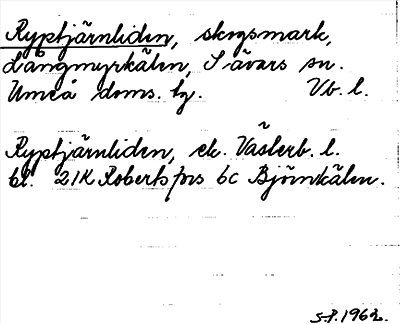 Ryptjärnliden, skogsmark,
Långmyrkälen, Sävars sn.
Umeå doms. hg. Vb. l.
Ryptjärnliden, ek. Västerb. l.
bl. 21K Robertsfors 6c Björnkälen.
S.P. 1962.